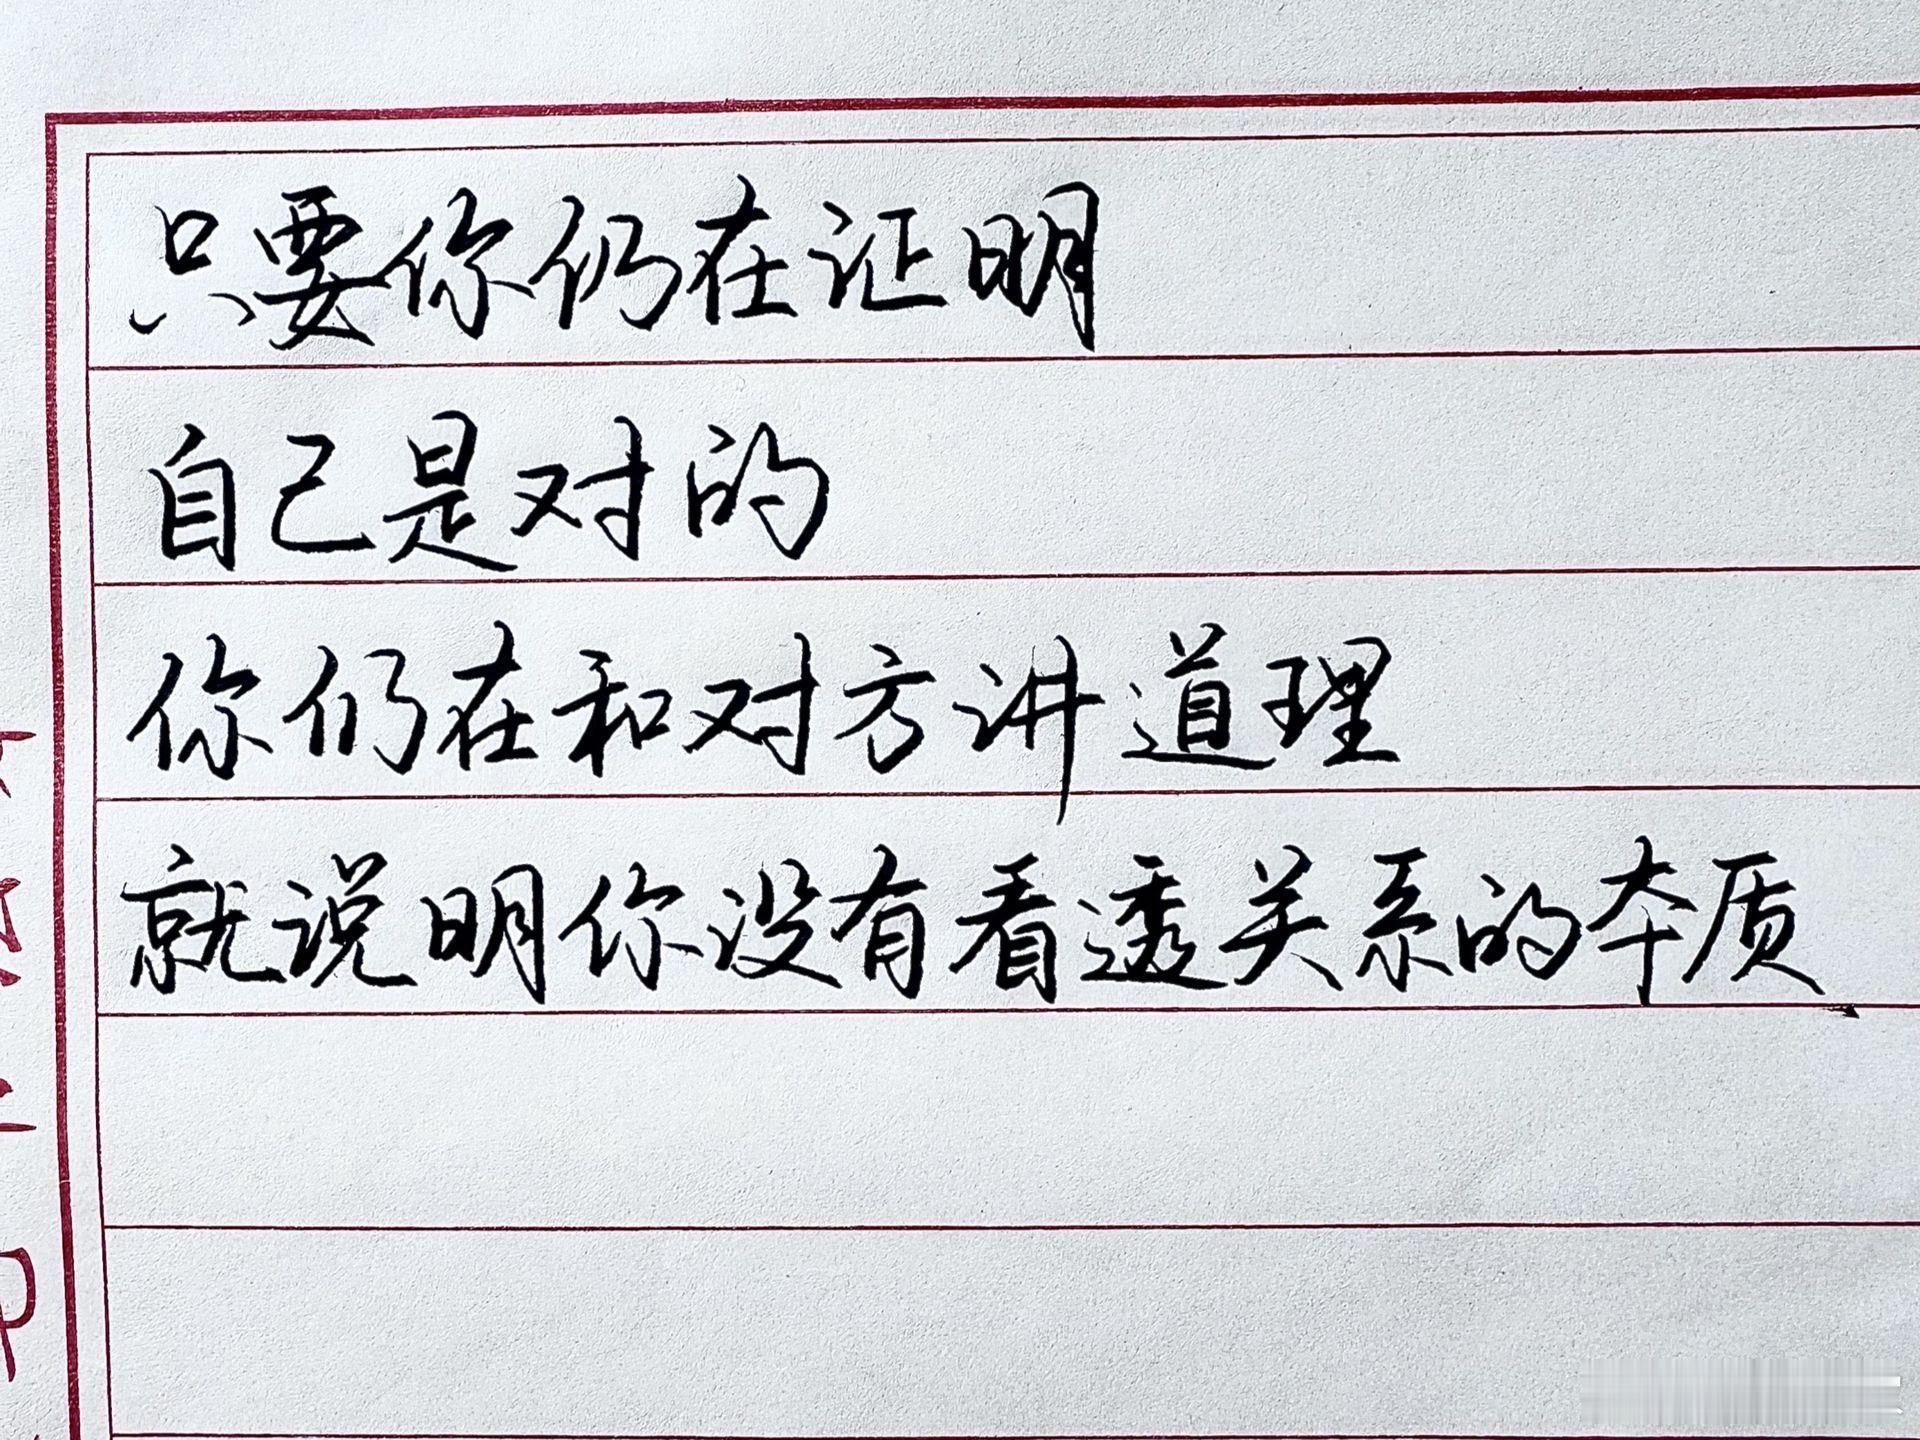 只要你仍在证明
自己是对的
你仍在和对方讲道理
就说明你没有看透关系的本质